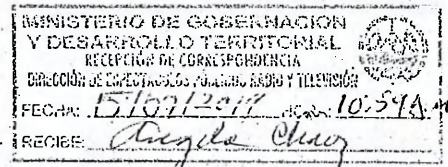 MINISTERIO DE GOBERNACION
Y DESARROLLO TERRITORIAL
RECEPCIÓN DE CORRESPONDENCIA
DIRECCIÓN DE ESPECTACULOS PUBLICOS, RADIO Y TELEVISIÓN
FECHA: 15/07/2019 HORA: 10:59 A.m
RECIBE: Angela Chavez